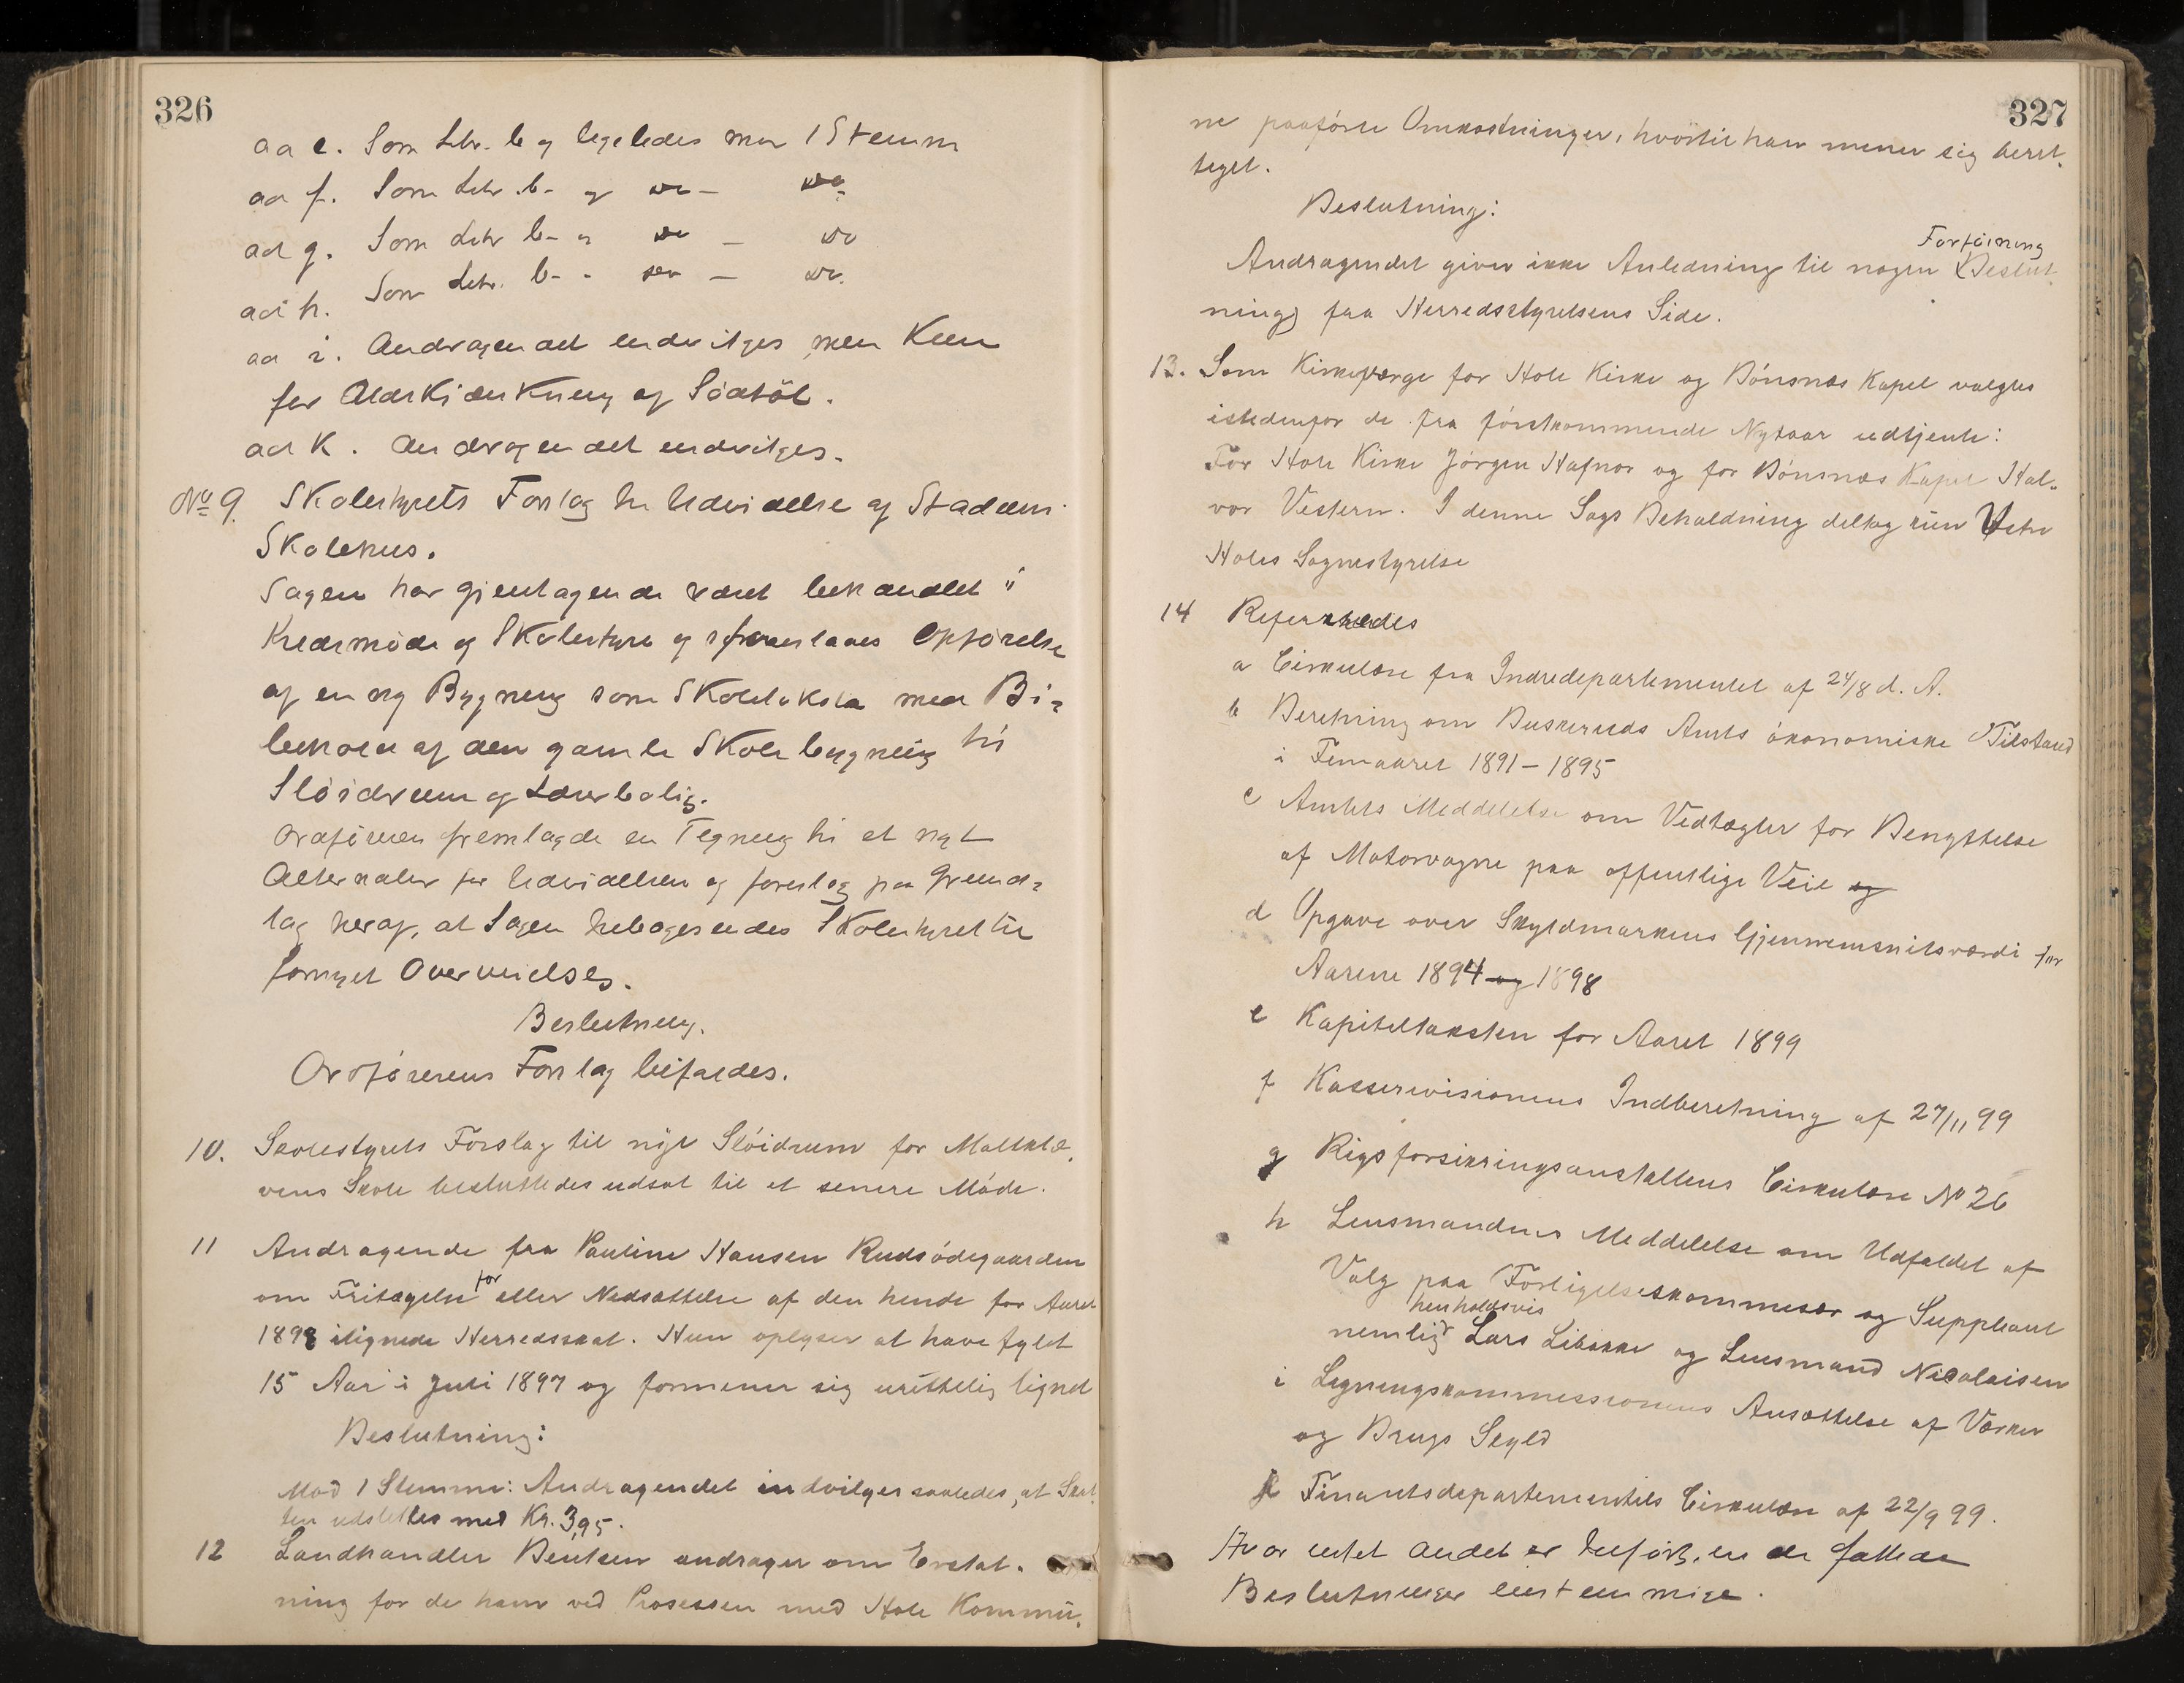 326
ad e. Som Litr. b og ligeledes mod 1 Stemm
ad f. Som Litr. b - og do - do.
ad g. Som Litr b - og do - do
ad h. Som Litr. b - - do - do.
ad i. Andragendet indvilges, men kun
for Alds Kjænkning af Sødtöl.
ad K. Andragendet indvilges.
No 9. Skolestyrets Forslag til Udvidelse af Stadum
Skolehus.
Sagen har gjentagende været behandlet i
Kredsmöde og Skolestyre og foreslaaes Opförelse
af en ny Bygning som Skolelokale med Bi=
behold af den gamle Skolebygning til
Slöidrum og Lærerbolig.
Ordföreren fremlagde en Tegning til et nyt
Alternativ for Udvidelsen og foreslog paa Grund=
lag heraf, at Sagen tilbagesendes Skolestyret til
fornyet Overveielse.
Beslutning.
Ordförerens Forslag bifaldes.
10. Skolestyrets Forslag til nyt Slöidrum for Maltkle-
vens Skole besluttedes udsat til et senere Möde.
11 Andragende fra Pauline Hansen Rudsödegaarden
om Fritagelse for eller Nedsættelse af den hende for Aaret
1898 ilignede Herredsskat. Hun oplyser at have fyldt
15 Aar i Juli 1897 og formener sig urettelig lignet
Beslutning:
Mod 1 Stemme: Andragendet indvilges saaledes, at Skat-
ten udslettes med Kr. 3,95.
12 Landhandler Bentsen andrager om Erstat-
ning for de ham ved Prosessen med Hole Kommu-
327
ne paaförte Omkostninger, hvortil han mener sig beret-
tiget.
Beslutning:
Forföining
Andragendet giver ikke Anledning til nogen (Beslut-
ning) fra Herredsstyrelsens Side.
13. Som Kirkeværge for Hole Kirke og Bönsnæs Kapel valgtes
istedenfor de fra förstkommende Nytaar udtjente:
For Hole Kirke Jörgen Hafnor og for Bönsnæs Kapel Hal-
vor Vestern. I denne Sags Behandling deltog kun
Holes Sognestyrelse
14 Refereredes
a Cirkulære fra Indredepartementet af 24/8 d. A.
b Beretning om Buskeruds Amts ökonomiske Tilstand
i Femaaret 1891 - 1895
c Amtets Meddelelse om Vedtægter for Benyttelse
af Motorvogne paa offentlige Veie og
d Opgave over Skyldmarkens Gjennemsnitsværdi for
Aarene 1894 og 1898
e Kapiteltaksten for Aaret 1899
f Kasserevisionens Indberetning af 27/11 99
g Rigsforsikringsanstaltens Cirkulære No 26
h Lensmandens Meddelelse om Udfaldet af
Valg paa Forligelseskommissær og Suppleant
henholdsvis
nemlig Lars Libakke og Lensmand Nicolaisen
i Ligningskommissionens Ansættelse af Værker
og Brugs Skyld
k Finantsdepartementets Cirkulære af 22/9 99.
Hvor intet andet er tilfört, er de fattede
Beslutninger eenstemmige.